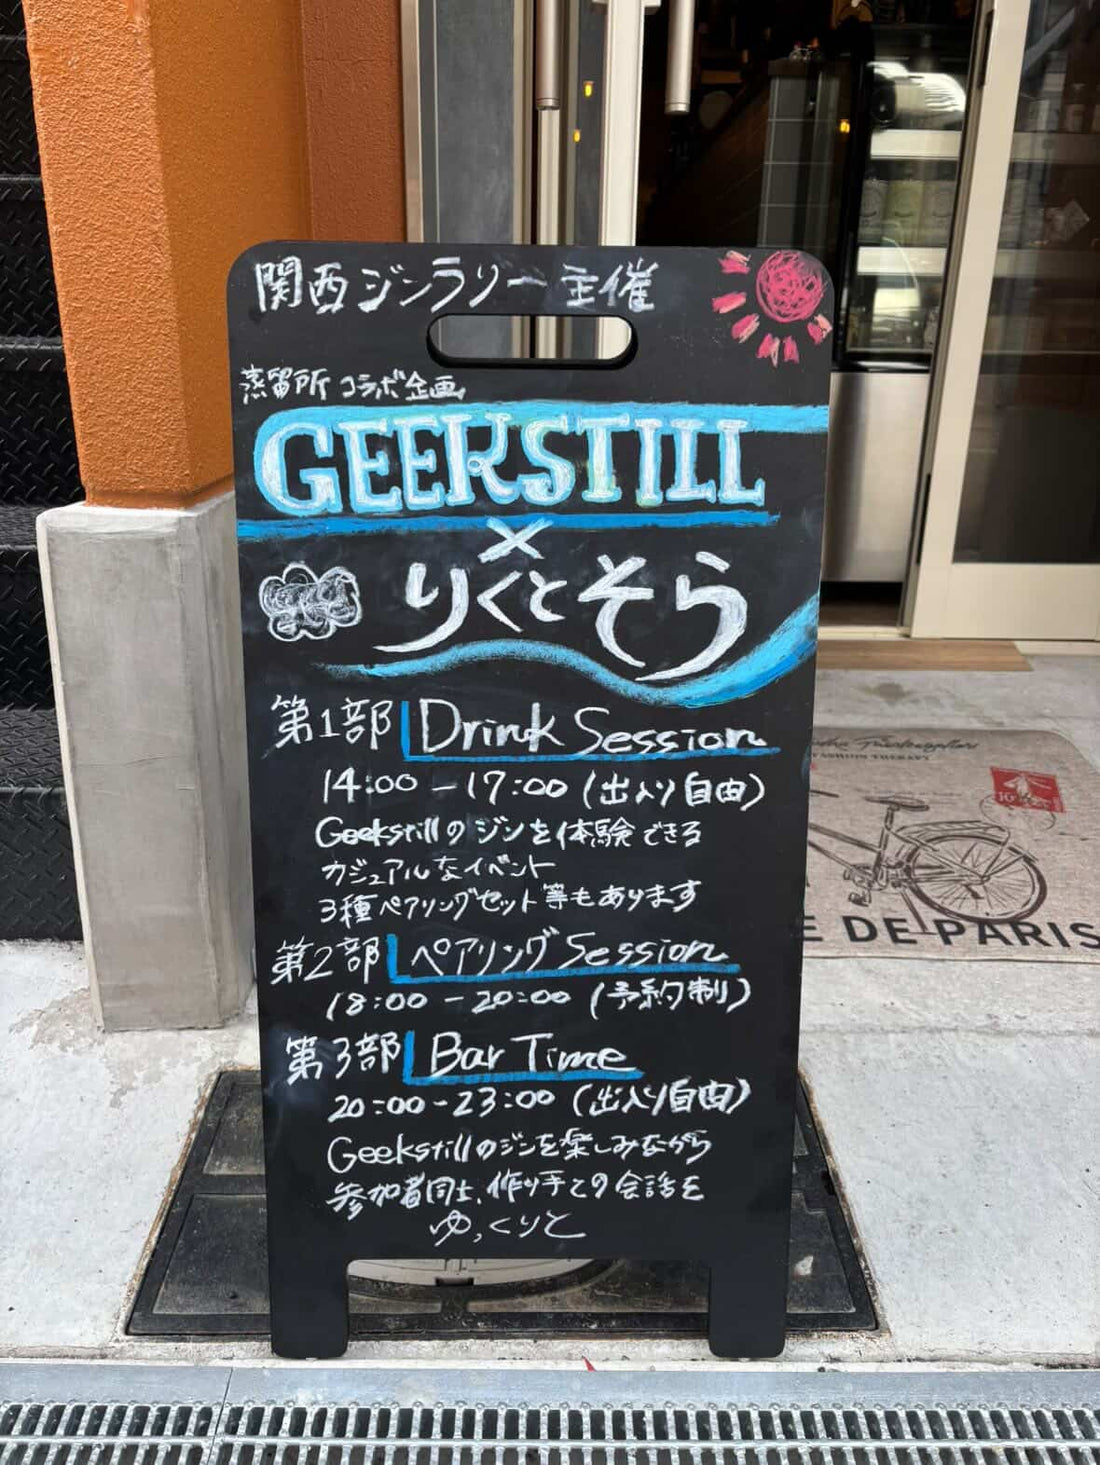 関西ジンラリー主催
蒸留所 コラボ企画
GEEKSTILL
×
りくとそら
第1部 Drink Session
14:00-17:00 (出入り自由)
Geekstillのジンを体験できる
カジュアルなイベント
3種ペアリングセット等もあります
第2部 ペアリング Session
18:00-20:00 (予約制)
第3部 Bar Time
20:00-23:00 (出入り自由)
Geekstillのジンを楽しみながら
参加者同士、作り手との会話を
ゆっくりと
FASHION THERAPY
E DE PARIS